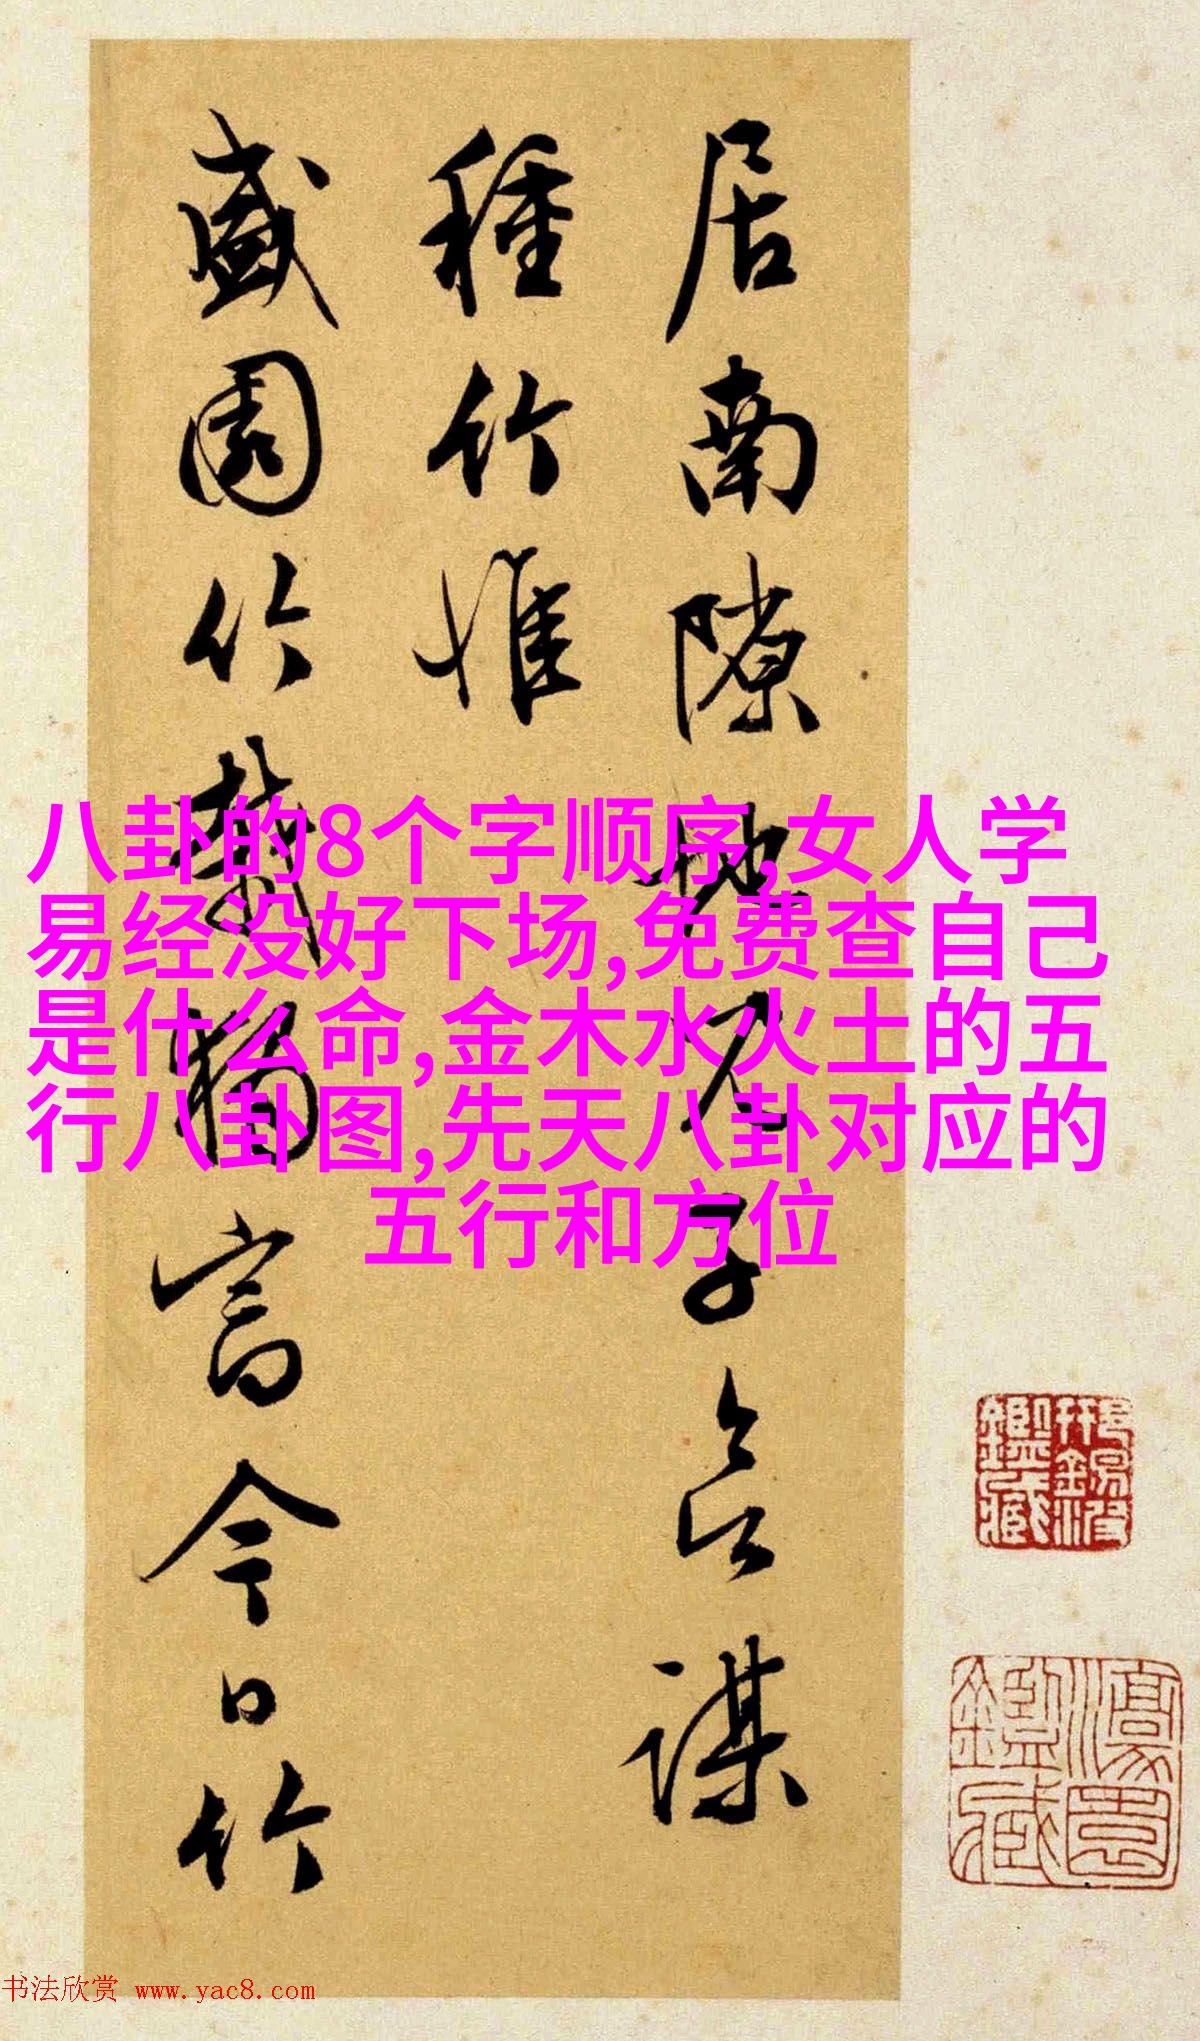 居南隙地子謀
種竹惟
盛園竹猶言今日竹
八卦的8个字顺序,女人学
易经没好下场,免费查自己
是什么命,金木水火土的五
行八卦图,先天八卦对应的
五行和方位
鑑藏
鑑藏
书法欣赏 www.yac8.com